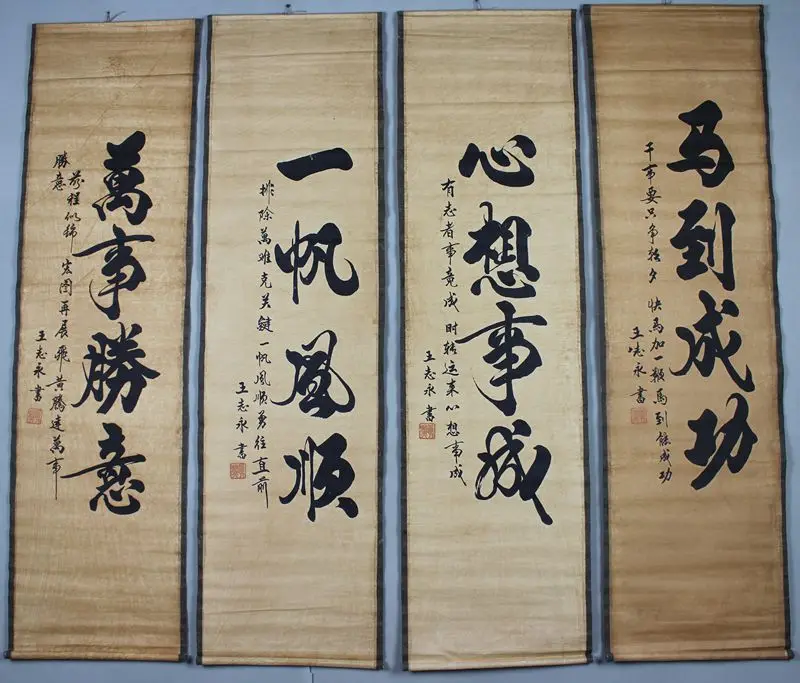 马到成功
干事要只争朝夕 快马加一鞭馬到能成功
王志永書
心想事成
有志者事竟成 时转运来心想事成
王志永書
一帆風顺
排除萬难克关键 一帆風顺勇往直前
王志永書
萬事勝意
前程似锦 宏图再展飛黄腾達萬事
勝意
王志永書